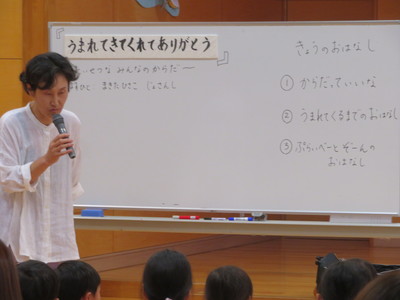 『うまれてきてくれてありがとう』
せつな みんなのからだ
ひと まきた ひさこ じょさんし
きょうのおはなし
① からだっていいな
② うまれてくるまでのおはなし
③ ぷらいべーと ぞーんの
おはなし